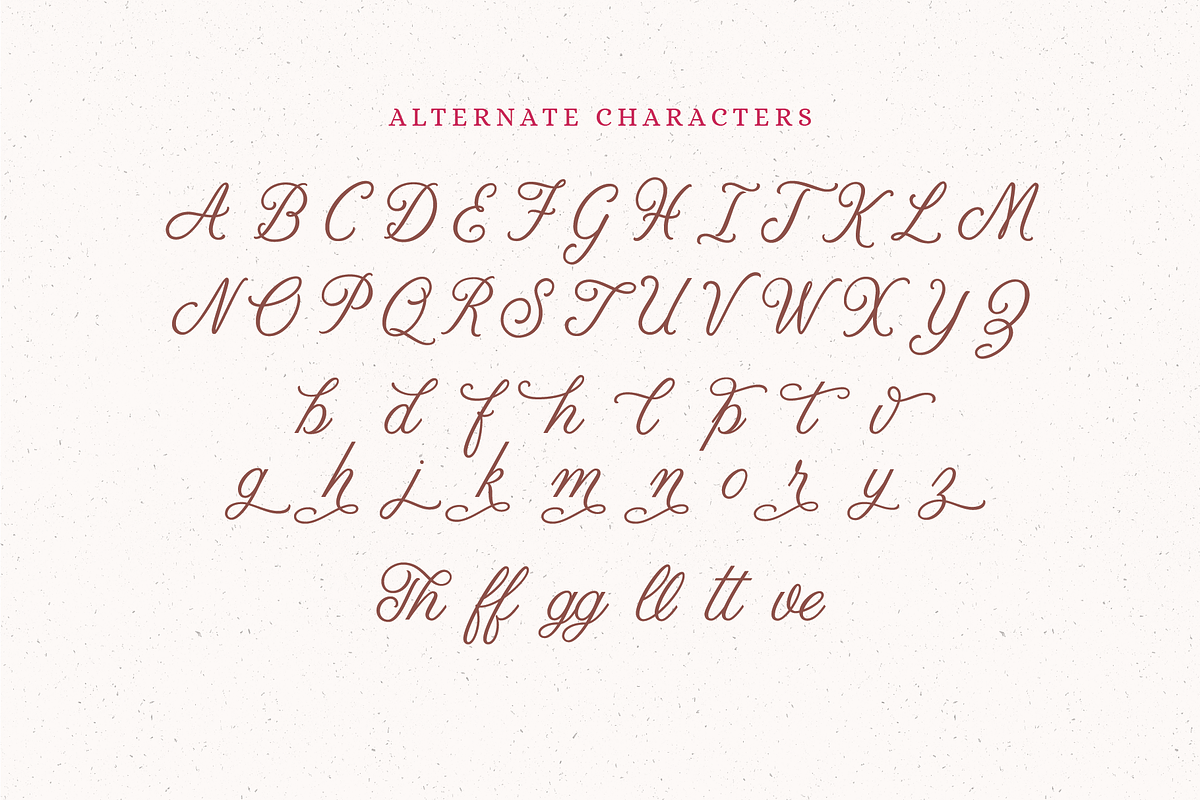 ALTERNATE CHARACTERS
A B C D E F G H I J K L M
N O P Q R S T U V W X Y Z
b d f h l p t v
g h j k m n o r y z
Th ff gg ll tt ve